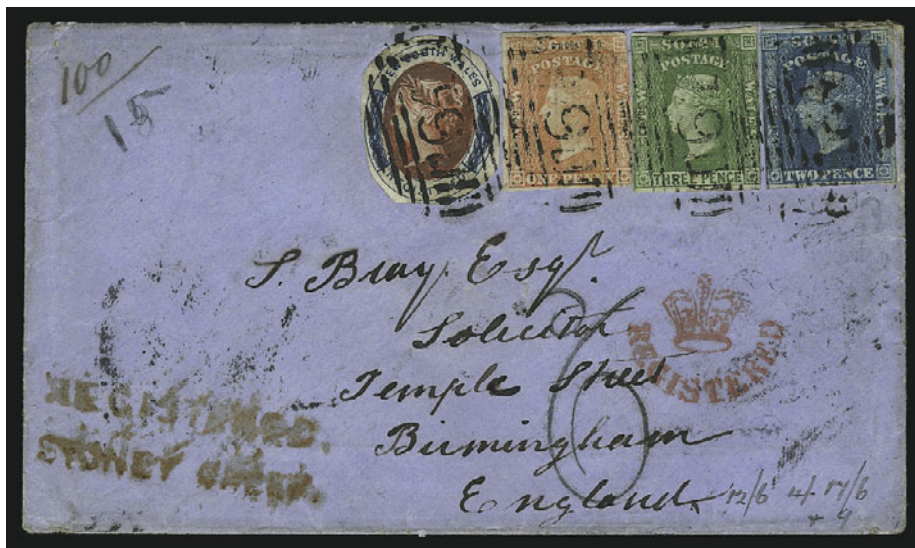 100
15
NEW SOUTH WALES
POSTAGE
ONE PENNY
POSTAGE
WALES
THREE PENCE
POSTAGE
TWO PENCE
S. Bray Esqr.
Solicitor
Temple Street
Birmingham
England
REGISTERED
6
REGISTERED.
SYDNEY
12/6 4/- 17/6
+ 9